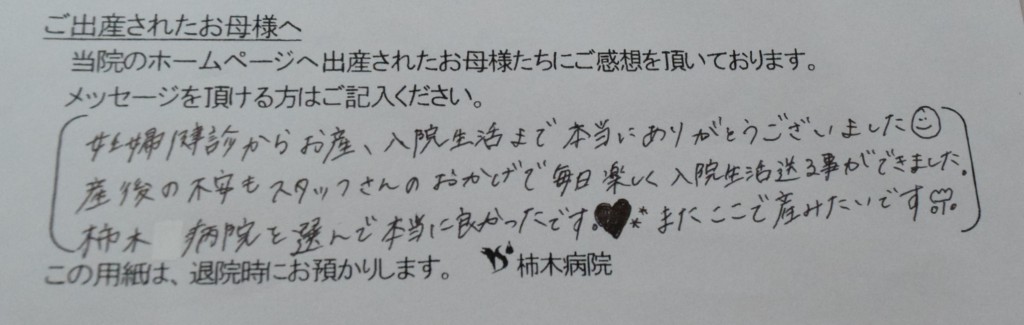 ご出産されたお母様へ
当院のホームページへ出産されたお母様たちにご感想を頂いております。
メッセージを頂ける方はご記入ください。
妊婦健診からお産、入院生活まで本当にありがとうございました
産後の不安もスタッフさんのおかげで毎日楽しく入院生活送る事ができました。
柿木 病院を選んで本当に良かったです。またここで産みたいです
この用紙は、退院時にお預かりします。 柿木病院